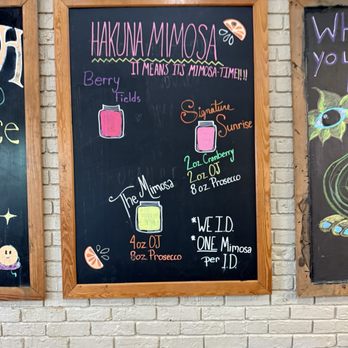 HAKUNA MIMOSA
IT MEANS ITS MIMOSA-TIME!!!!
Berry
Fields
Signature
Sunrise
2oz Cranberry
2oz OJ
8oz Prosecco
The Mimosa
4oz OJ
8oz Prosecco
*WE I.D.
*ONE Mimosa
per I.D.
Wh
you